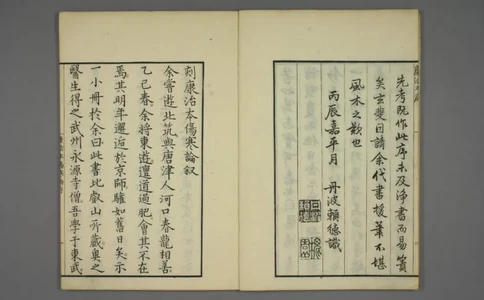 先考既作此序未及淨書而易簀
矣玄燮曰請余代書援筆不堪
風木之歎也
丙辰嘉平月 丹波賴德識
刻康治本傷寒論敘
余嘗遊北筑與唐津人河口春龍相善
乙巳春余將東遊邅道過肥會其不在
焉其明年邂逅於京師驩如舊日矣示
一小冊於余曰此書比叡山所藏奥之
醫生得之武州永源寺僧吾學于東武